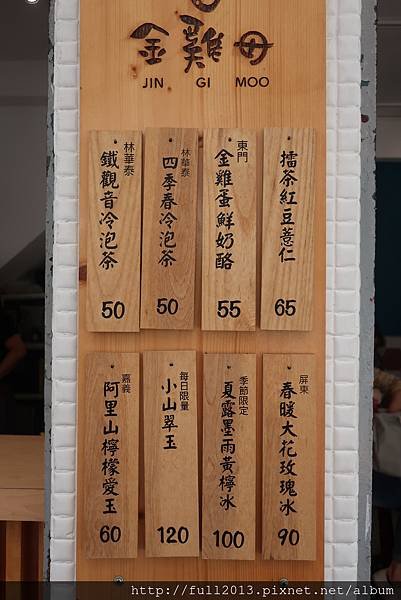 金雞母
JIN GI MOO
林華泰
鐵觀音冷泡茶
50
林華泰
四季春冷泡茶
50
東門
金雞蛋鮮奶酪
55
擂茶紅豆薏仁
65
嘉義
阿里山檸檬愛玉
60
每日限量
小山翠玉
120
季節限定
夏露墨雨黃檸冰
100
屏東
春暖大花玫瑰冰
90
http://full2013.pixnet.net/album